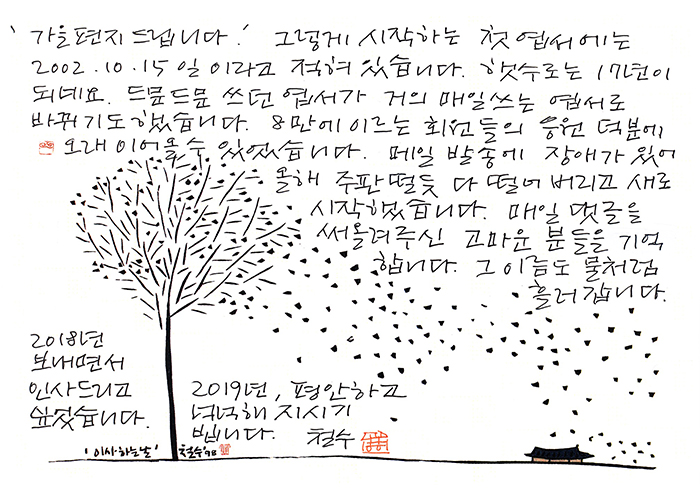 '가을편지 드립니다.' 그렇게 시작하는 첫 엽서에는
2002.10.15일 이라고 적혀 있습니다. 햇수로는 17년이
되네요. 드문드문 쓰던 엽서가 거의 매일쓰는 엽서로
바뀌기도 했습니다. 8만에 이르는 회원들의 응원 덕분에
오래 이어올 수 있었습니다. 메일 발송에 장애가 있어
올해 주판떨듯 다 떨어 버리고 새로
시작했습니다. 매일 댓글을
써올려주신 고마운 분들을 기억
합니다. 그 이름도 물처럼
흘러갑니다.
2018년
보내면서
인사드리고
싶었습니다.
2019년, 평안하고
넉넉해 지시기
빕니다. 철수
'이사하는날' 철수'98